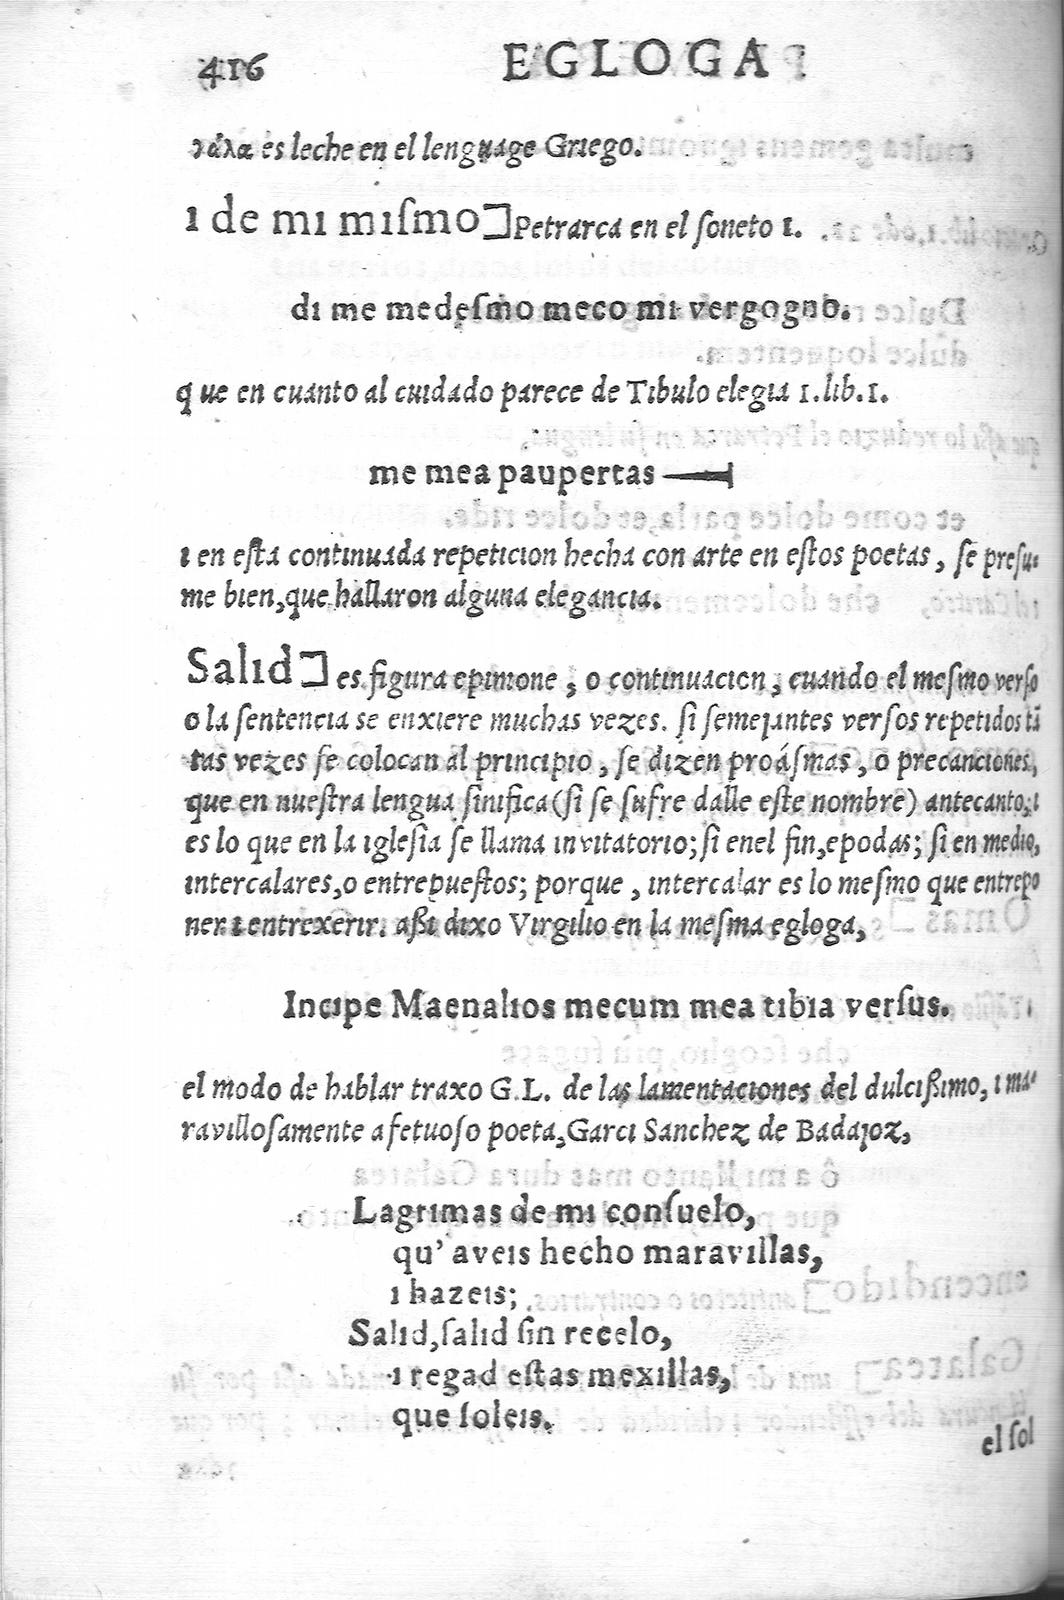 416 EGLOGA
γάλα es leche en el lenguage Griego.
ı de mı mıſmo] Petrarca en el ſoneto 1.
dı me medeſmo meco mı vergogno.
que en cuanto al cuıdado parece de Tıbulo elegıa 1.lıb.1.
me mea paupertas
ı en eſta contınuada repetıcıon hecha con arte en eſtos poetas, ſe preſu-
me bıen, que hallaron alguna elegancıa.
Salıd] es figura epımone, o contınuacıon, cuando el meſmo verſo
o la ſentencıa se enxıere muchas vezes. ſi ſemeȷantes verſos repetıdos tã
tas vezes ſe colocan al prıncıpıo, ſe dızen proáſmas, o precancıones,
que en nueſtra lengua ſinıfica (ſi se ſufre dalle eſte nombre) antecanto, ı
es lo que en la ıgleſia ſe llama ınvıtatorıo; ſi enel fin, epodas; ſi en medıo,
ıntercalares, o entrepueſtos; porque, ıntercalar es lo meſmo que entrepo
ner ı entrexerır. aßı dıxo Vırgılıo en la meſma egloga,
Incıpe Maenalıos mecum mea tıbıa verſus.
el modo de hablar traxo G.L. de las lamentacıones del dulcıßımo, ı ma-
ravılloſamente afetuoſo poeta, Garcı Sanchez de Badaȷoz,
Lagrımas de mı conſuelo,
qu' aveıs hecho maravıllas,
ı hazeıs;
Salıd, ſalıd ſin recelo,
ı regad eſtas mexıllas,
que ſoleıs.
el ſol